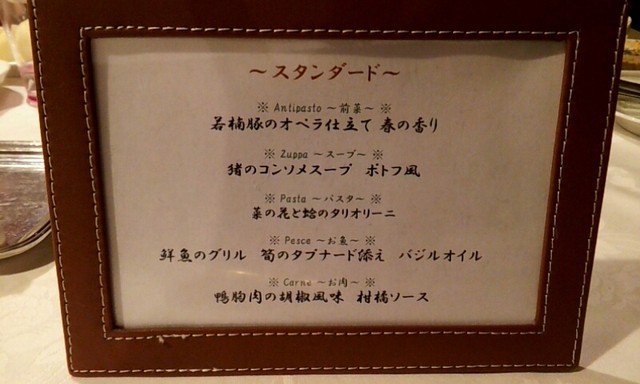 ～スタンダード～
※ Antipasto ～前菜～ ※
若楠豚のオペラ仕立て 春の香り
※ Zuppa ～スープ～ ※
猪のコンソメスープ ポトフ風
※ Pasta ～パスタ～ ※
菜の花と蛤のタリオリーニ
※ Pesce ～お魚～ ※
鮮魚のグリル 筍のタプナード添え バジルオイル
※ Carne ～お肉～ ※
鴨胸肉の胡椒風味 柑橘ソース